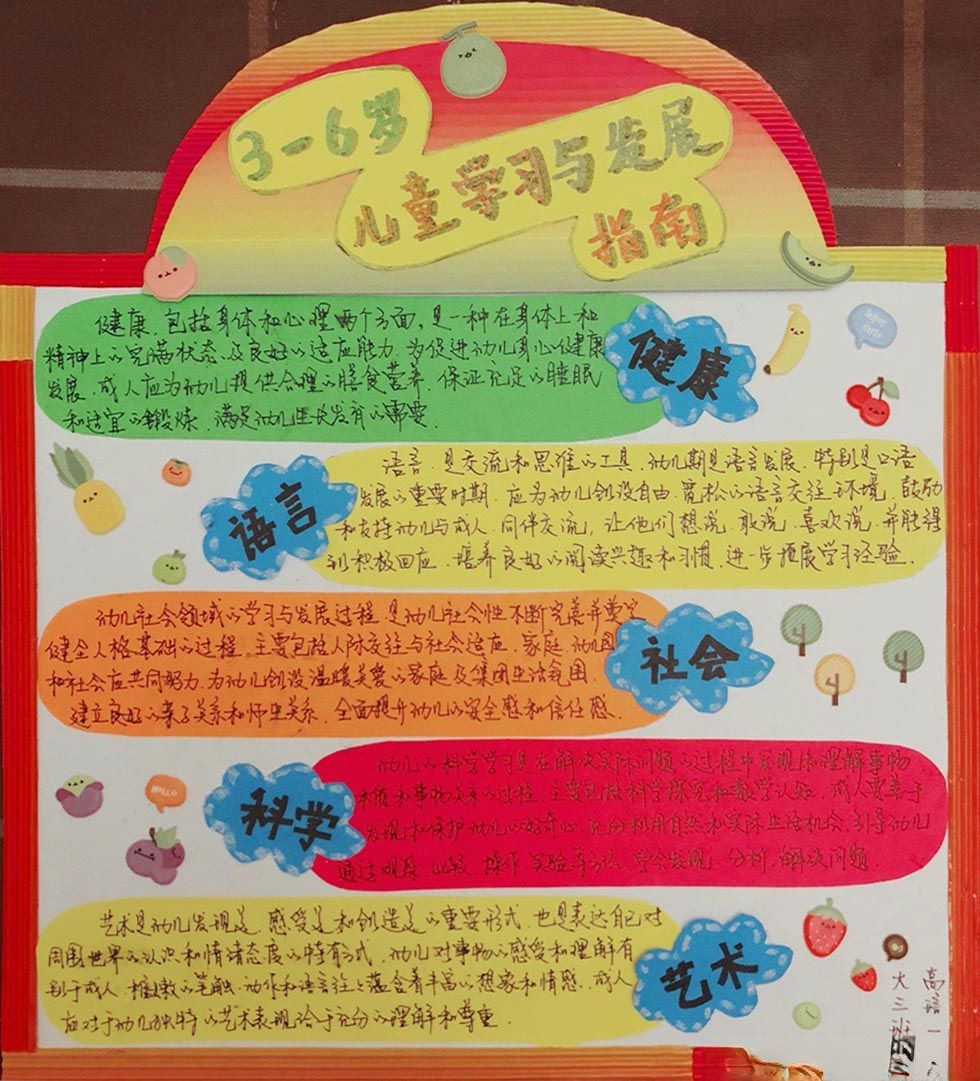 3-6岁
儿童学习与发展
指南
健康,包括身体和心理两个方面,是一种在身体上和
精神上的完满状态及良好的适应能力,为促进幼儿身心健康
发展,成人应为幼儿提供合理的膳食营养,保证充足的睡眠
和适宜的锻炼,满足幼儿生长发育的需要.
健康
super
cute
语言
语言,是交流和思维的工具,幼儿期是语言发展,特别是口语
发展的重要时期.应为幼儿创设自由、宽松的语言交往环境,鼓励
和支持幼儿与成人、同伴交流,让他们想说、敢说、喜欢说、并能得
到积极回应.培养良好的阅读兴趣和习惯,进一步拓展学习经验.
幼儿社会领域的学习与发展过程,是幼儿社会性不断完善并奠定
健全人格基础的过程,主要包括人际交往与社会适应.家庭、幼儿园
和社会应共同努力,为幼儿创设温暖关爱的家庭及集团生活氛围,
建立良好的亲子关系和师生关系,全面提升幼儿的安全感和信任感.
社会
HELLO
科学
幼儿的科学学习是在解决实际问题的过程中发现和理解事物
本质和事物关系的过程,主要包括科学探究和数学认知.成人要善于
发现和保护幼儿的好奇心,充分利用自然和实际生活机会,引导幼儿
通过观察、比较、操作、实验等方法,学会发现、分析、解决问题.
艺术是幼儿发现美、感受美和创造美的重要形式,也是表达自己对
周围世界的认识和情绪态度的特有形式.幼儿对事物的感受和理解有
别于成人,稚嫩的笔触、动作和语言往往蕴含着丰富的想象和情感,成人
应对于幼儿独特的艺术表现给于充分的理解和尊重.
艺术
大三班
高 一